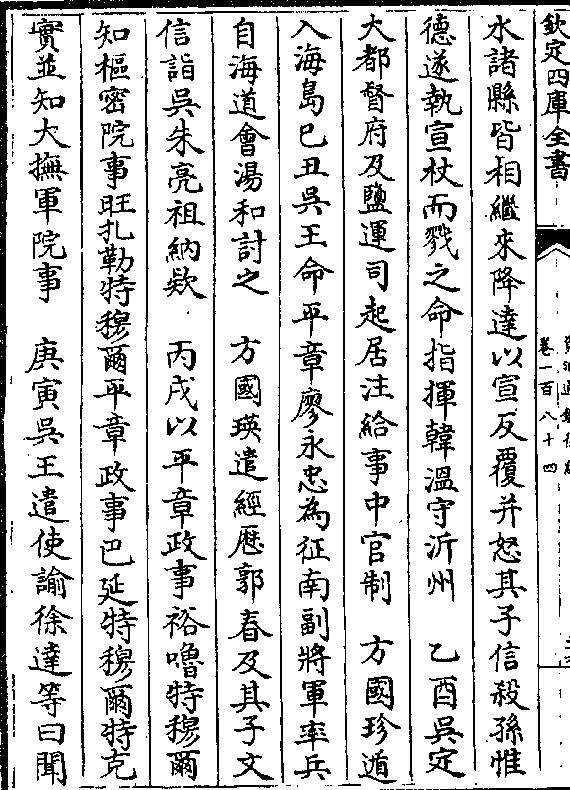 欽定四庫全書
卷一百八十四
水諸縣皆相繼來降達以宣反覆并怒其子信殺孫惟
德遂執宣杖而戮之命指揮韓溫守沂州　乙酉吳定
大都督府及鹽運司起居注給事中官制　方國珍遁
入海島己丑吳王命平章廖永忠為征南副將軍率兵
自海道會湯和討之　方國瑛遣經歷郭春及其子文
信詣吳朱亮祖納欵　丙戌以平章政事裕嚕特穆爾
知樞密院事旺扎勒特穆爾平章政事巴延特穆爾特克
實並知大撫軍院事　庚寅吳王遣使諭徐達等曰聞